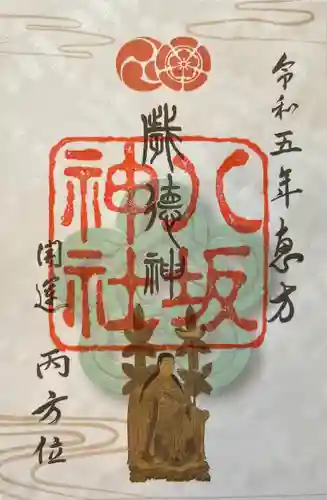 令和五年恵方
歳徳神
八坂神社
開運
丙方位